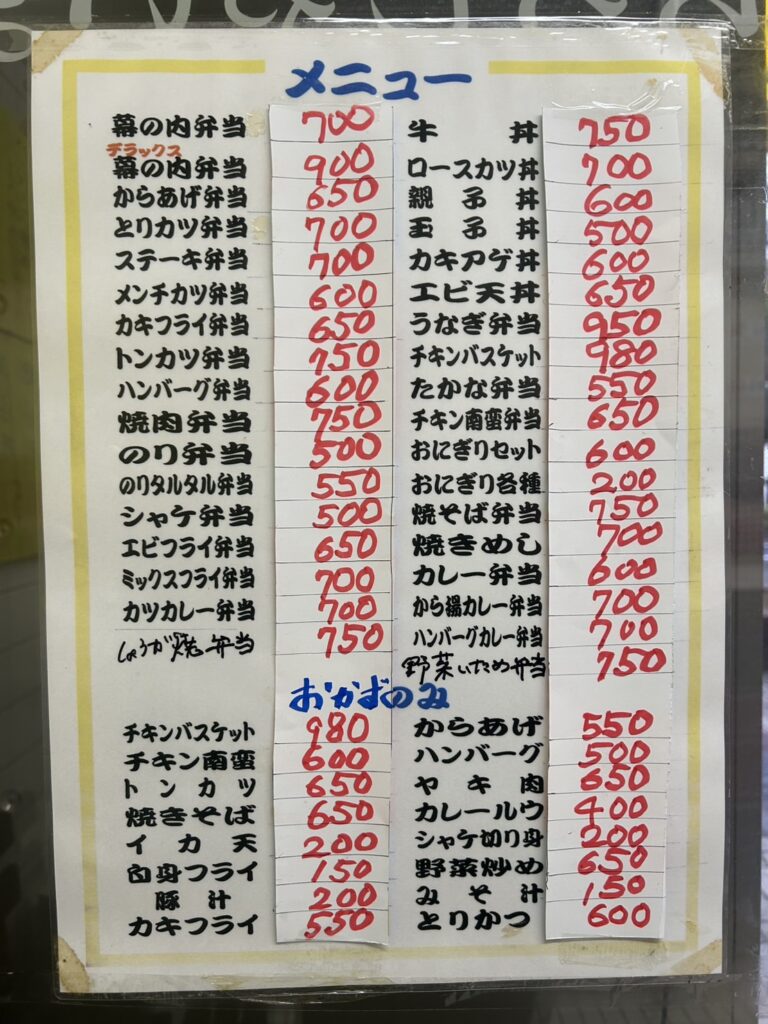 メニュー
幕の内弁当 700
デラックス
幕の内弁当 900
からあげ弁当 650
とりカツ弁当 700
ステーキ弁当 700
メンチカツ弁当 600
カキフライ弁当 650
トンカツ弁当 750
ハンバーグ弁当 600
焼肉弁当 750
のり弁当 500
のりタルタル弁当 550
シャケ弁当 500
エビフライ弁当 650
ミックスフライ弁当 700
カツカレー弁当 700
しょうが焼弁当 750
牛丼 750
ロースカツ丼 700
親子丼 600
玉子丼 500
カキアゲ丼 600
エビ天丼 650
うなぎ弁当 950
チキンバスケット 980
たかな弁当 550
チキン南蛮弁当 650
おにぎりセット 600
おにぎり各種 200
焼そば弁当 750
焼きめし 700
カレー弁当 600
から揚カレー弁当 700
ハンバーグカレー弁当 700
野菜いため弁当 750
おかずのみ
チキンバスケット 980
チキン南蛮 600
トンカツ 650
焼きそば 650
イカ天 200
白身フライ 150
豚汁 200
カキフライ 550
からあげ 550
ハンバーグ 500
ヤキ肉 650
カレールウ 400
シャケ切り身 200
野菜炒め 650
みそ汁 150
とりかつ 600